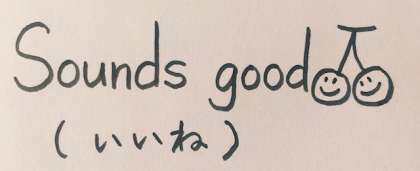 Sounds good
(いいね)